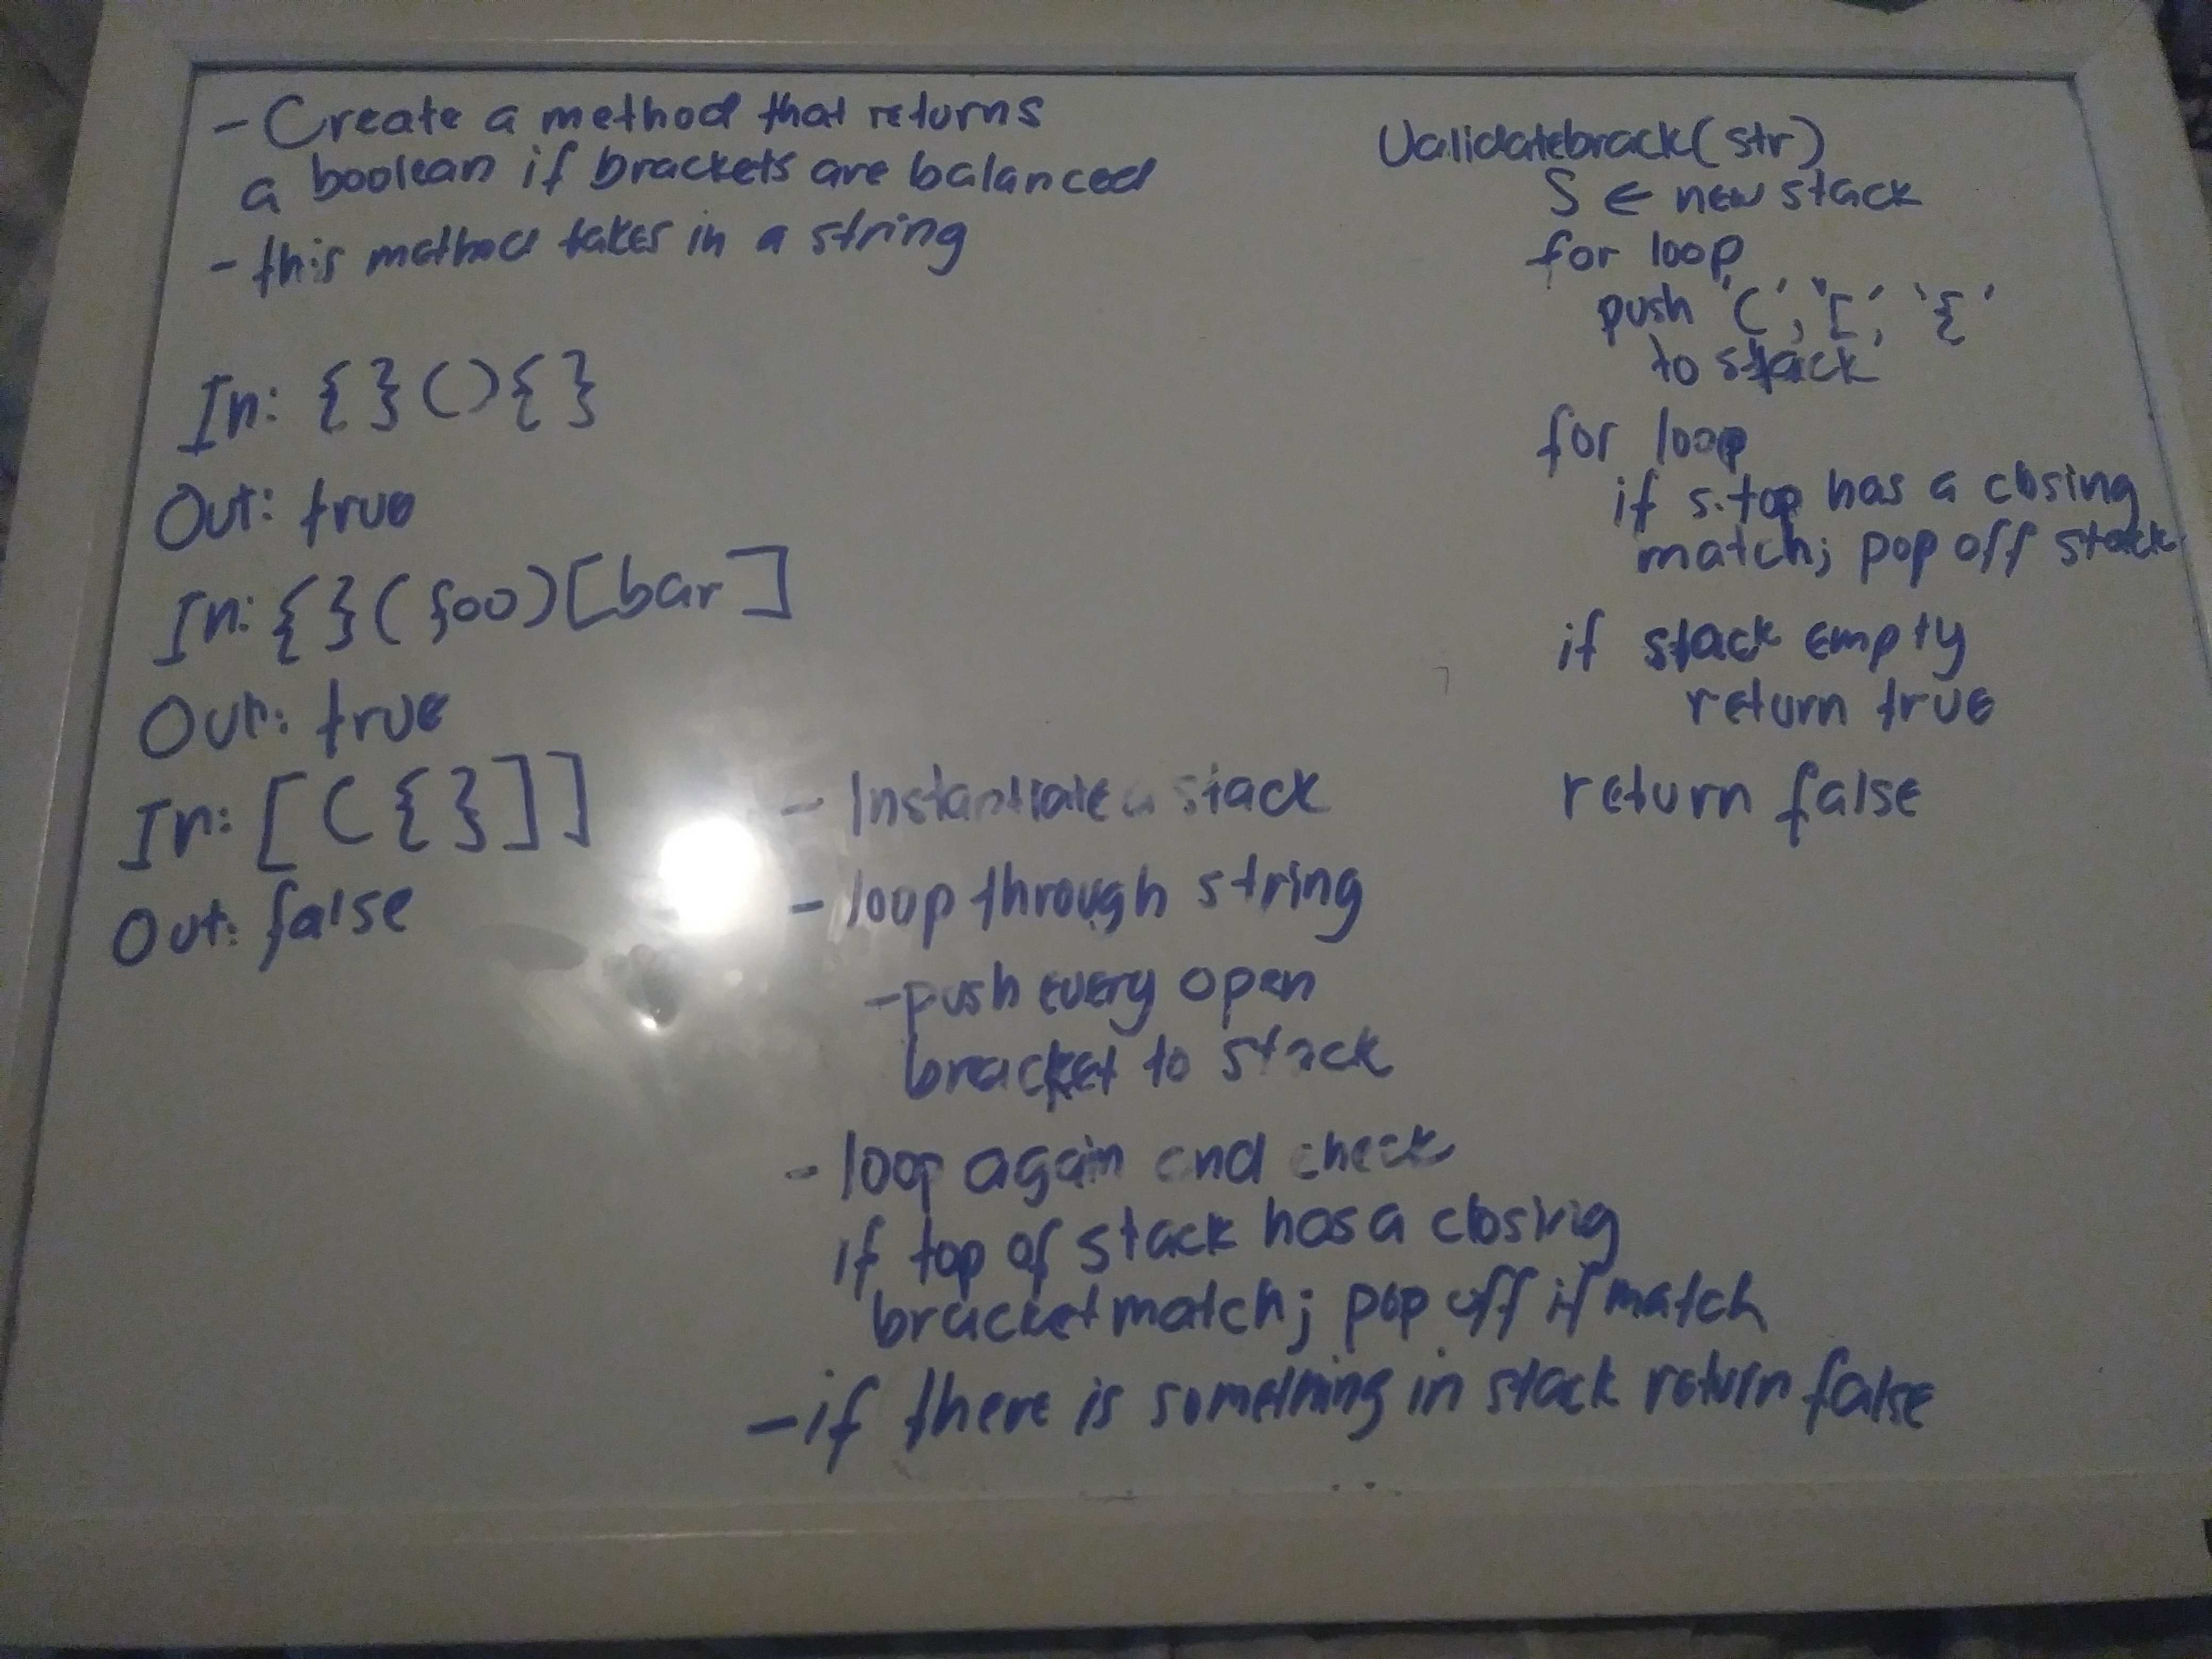 - Create a method that returns
a boolean if brackets are balanced
- this method takes in a string
In: {}(){}
Out: true
In: {}(foo)[bar]
Out: true
In: [({}]]
Out: false
- Instantiate a stack
- loop through string
- push every open
bracket to stack
- loop again and check
if top of stack has a closing
bracket match; pop off if match
- if there is something in stack return false
Validatebrack(str)
S ← new stack
for loop
push '(', '[', '{'
to stack
for loop
if s.top has a closing
match; pop off stack
if stack empty
return true
return false